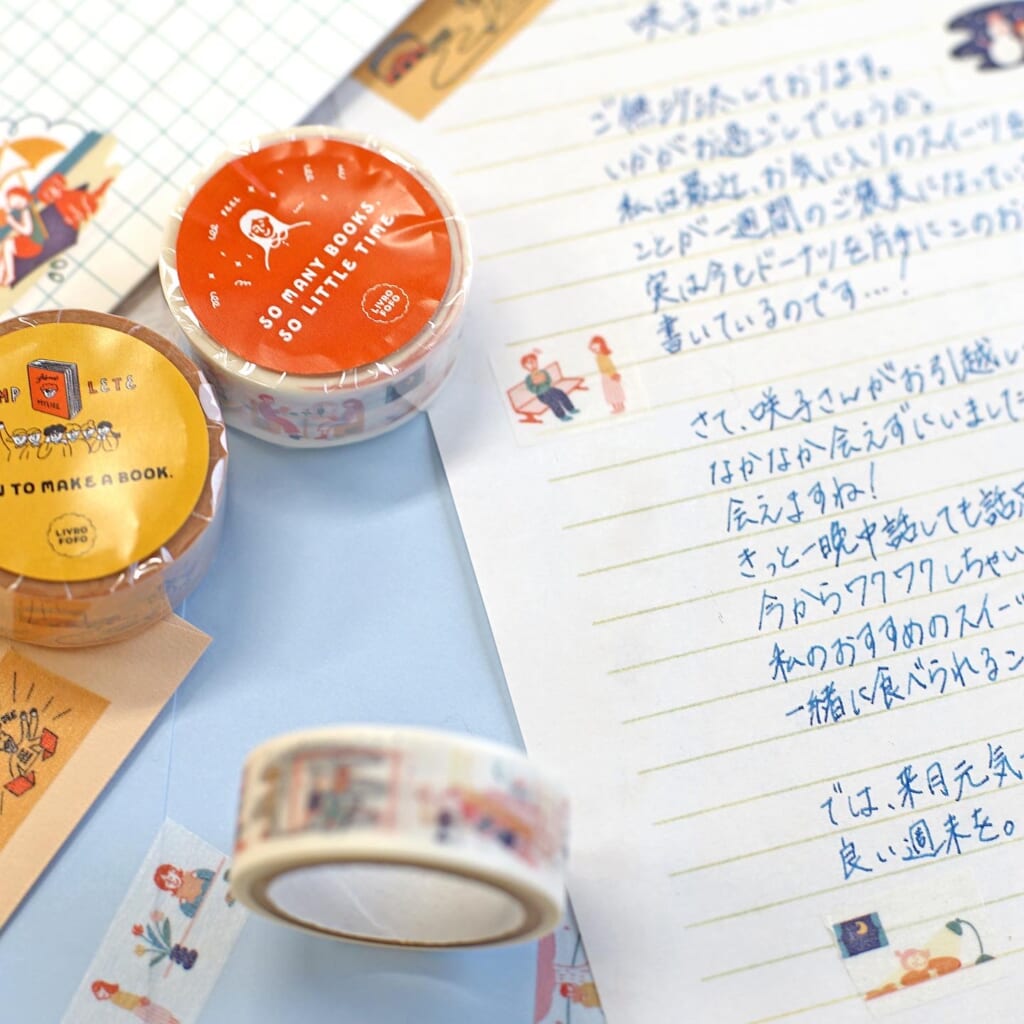 咲子さん
ご無沙汰しております。
いかがお過ごしでしょうか。
私は最近、お気に入りのスイーツを
ことが一週間のご褒美になってい
実は今もドーナツを片手にこのお
書いているのです…!
さて、咲子さんがお引越し
なかなか会えずにいました
会えますね!
きっと一晩中話しても話
今からワクワクしちゃい
私のおすすめのスイーツ
一緒に食べられるこ
では、来月元気
良い週末を。
FEEL
SO MANY BOOKS,
SO LITTLE TIME
LIVRO
FOFO
LETE
TO MAKE A BOOK.
LIVRO
FOFO